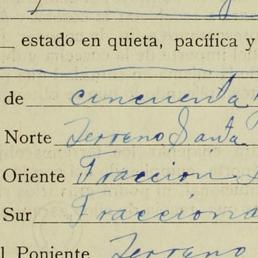 estado en quieta, pacífica y
de cincuenta
Norte Terreno Santa
Oriente Fraccion
Sur Fracciona
l Poniente Terreno